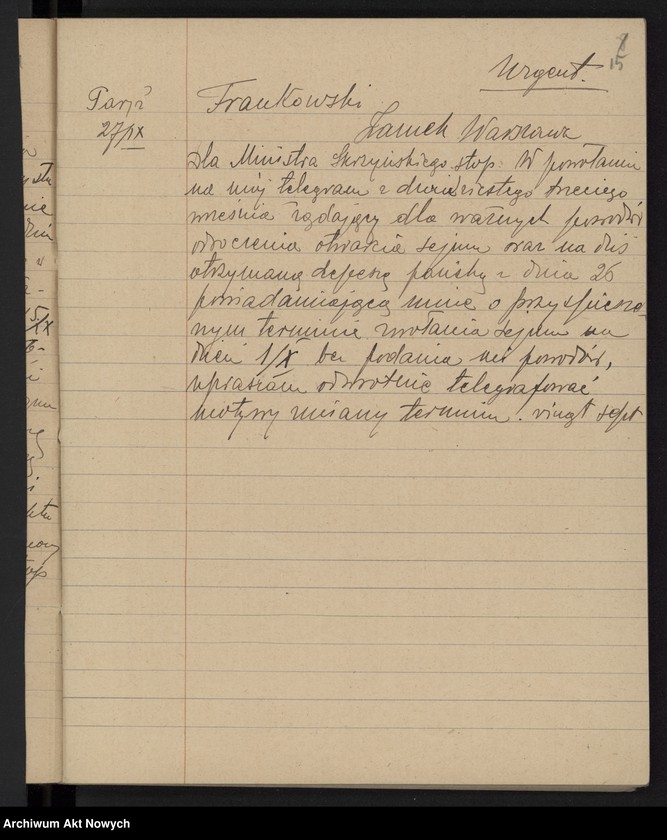 15
Urgent.
Paryż
27/IX
Frankowski
Zamek Warszawa
dla Ministra Skrzyńskiego stop. W powołaniu
na mój telegram z dwudziestego trzeciego
września żądający dla ważnych powodów
odroczenia otwarcia sejmu oraz na dziś
otrzymaną depeszę pańską z dnia 26
powiadamiającą mnie o przyspieszo-
nym terminie zwołania sejmu na
dzień 1/X bez podania mi powodów,
upraszam odwrotnie telegrafować
motywy zmiany terminu. vingt sept
5/X
Archiwum Akt Nowych